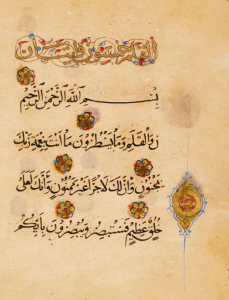 القلم خمسون
بِسْمِ اللهِ الرَّحْمٰنِ الرَّحِيْمِ
نٓ وَالْقَلَمِ وَمَا يَسْطُرُونَ مَا أَنْتَ بِنِعْمَةِ رَبِّكَ
بِمَجْنُونٍ وَإِنَّ لَكَ لَأَجْرًا غَيْرَ مَمْنُونٍ وَإِنَّكَ لَعَلَى
خُلُقٍ عَظِيمٍ فَسَتُبْصِرُ وَيُبْصِرُونَ بِأَيِّكُمُ